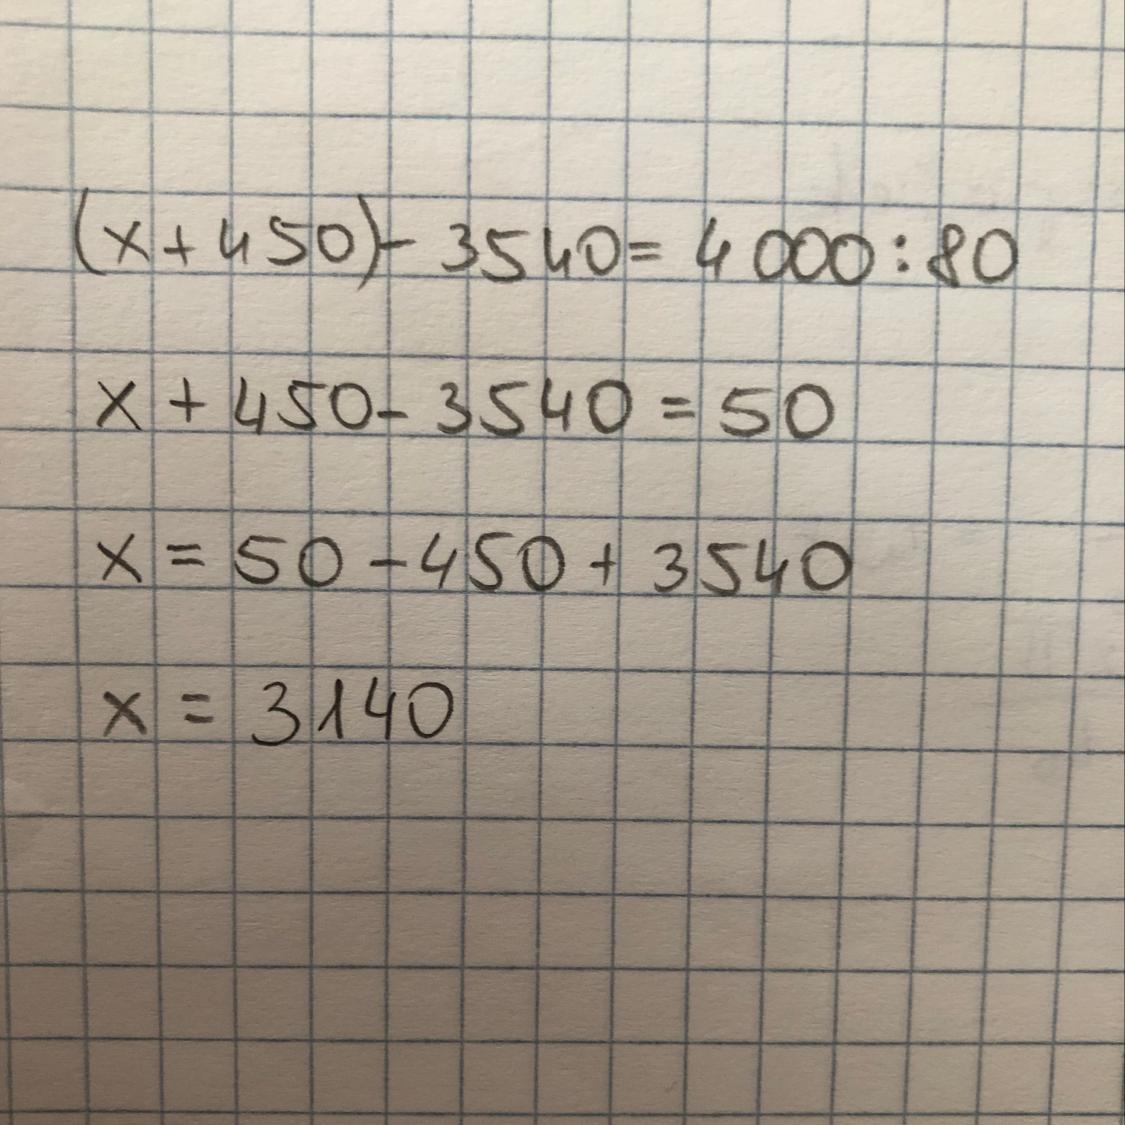 (x+450)- 3540= 4000:80
x + 450- 3540 = 50
x = 50 -450 + 3540
x = 3140